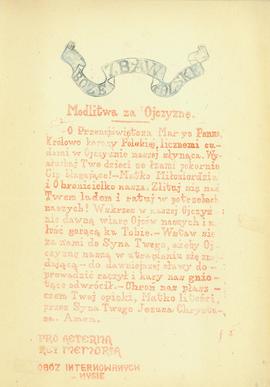 BOŻE ZBAW POLSKĘ
Modlitwa za Ojczyznę.
O Przenajświętsza Maryo Panno,
Królowo korony Polskiej, licznemi cu-
dami w Ojczyźnie naszej słynąca. Wy-
słuchaj Twe dzieci ze łzami pokornie
Cię błagające! – Matko Miłosierdzia
i Obronicielko nasza. Zlituj się nad
Twem ludem i ratuj w potrzebach
naszych! Wskrześ w naszej Ojczyź-
nie dawną wiarę Ojców naszych i mi-
łość gorącą ku Tobie. – Wstaw się
za nami do Syna Twego, ażeby Oj-
czyznę naszą w utrapieniu się znaj-
dującą – do dawniejszej sławy do-
prowadzić raczył i kary nas gnio-
tące odwrócił. – Chroń nas płasz-
czem Twej opieki, Matko litości,
przez Syna Twego Jezusa Chrystu-
sa. Amen.
PRO AETERNA
REI MEMORIA
OBÓZ INTERNOWANYCH